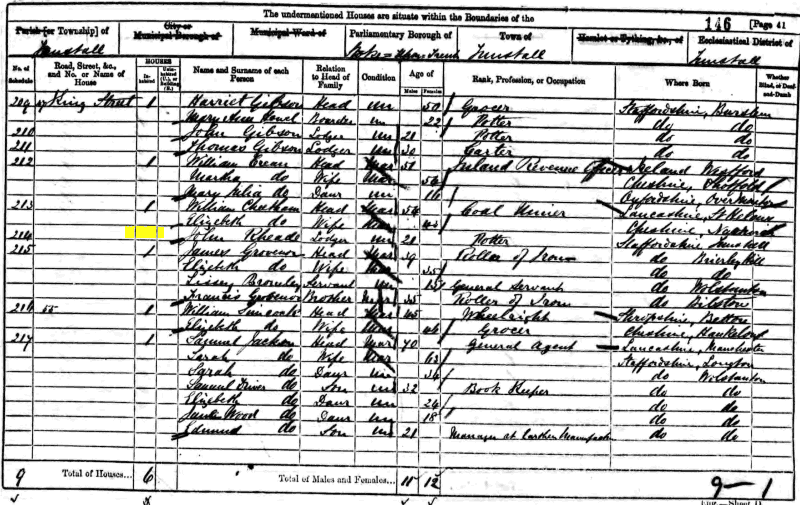 The undermentioned Houses are situate within the Boundaries of the
146 [Page 41
Parish [or Township] of City or Municipal Borough of Municipal Ward of Parliamentary Borough of Town of Hamlet or Tything, &c., of Ecclesiastical District of
Tunstall Stoke = Upon Trent Tunstall Tunstall
No. of Schedule Road, Street, &c., and No. or Name of House HOUSES In-habited Unin-habited (U.), or Building (B.) Name and Surname of each Person Relation to Head of Family Condition Age of Males Females Rank, Profession, or Occupation Where Born Whether Blind, or Deaf-and-Dumb
209 King Street 1 Harriet Gibson Head Un 50 Grocer Staffordshire, Burslem
Mary Ann Boarder Un 22 Potter do do
210 John Gibson Lodger Un 21 Potter do do
211 Thomas Gibson Lodger Un 30 Carter do do
212 1 William Head Mar 51 Inland Revenue Officer Ireland Wexford
Martha do Wife Mar Cheshire,
Mary do Daur Un 16 Oxfordshire,
213 1 William Head Mar 54 Coal Miner Lancashire, St Helens
Elizabeth do Wife Mar Cheshire,
214 John Rhead Lodger Un 21 Potter Staffordshire Tunstall
215 1 James Grovenor Head Mar 39 Roller of Iron do Brierley Hill
Elizabeth do Wife Mar 35 do do
Bromley Servant Un General Servant do Wolstanton
Francis Grosvenor Brother 35 Roller of Iron do Bilston
216 55 1 William Head Mar 45 Wheelright Shropshire, Betton
Elizabeth do Wife Mar 46 Grocer Cheshire,
217 1 Samuel Jackson Head Mar 70 General Agent Lancashire, Manchester
Sarah do Wife Mar 62 Staffordshire, Longton
Sarah do Daur Un 34 do Wolstanton
Samuel Driver do Son Un 32 Book Keeper do do
Elizabeth do Daur Un 24 do do
Wood do Daur Un 18 do do
Edmund do Son Un 21 Manager at Earthen do do
9 Total of Houses... 6 Total of Males and Females... 11 12 9—1
Eng.—Sheet D